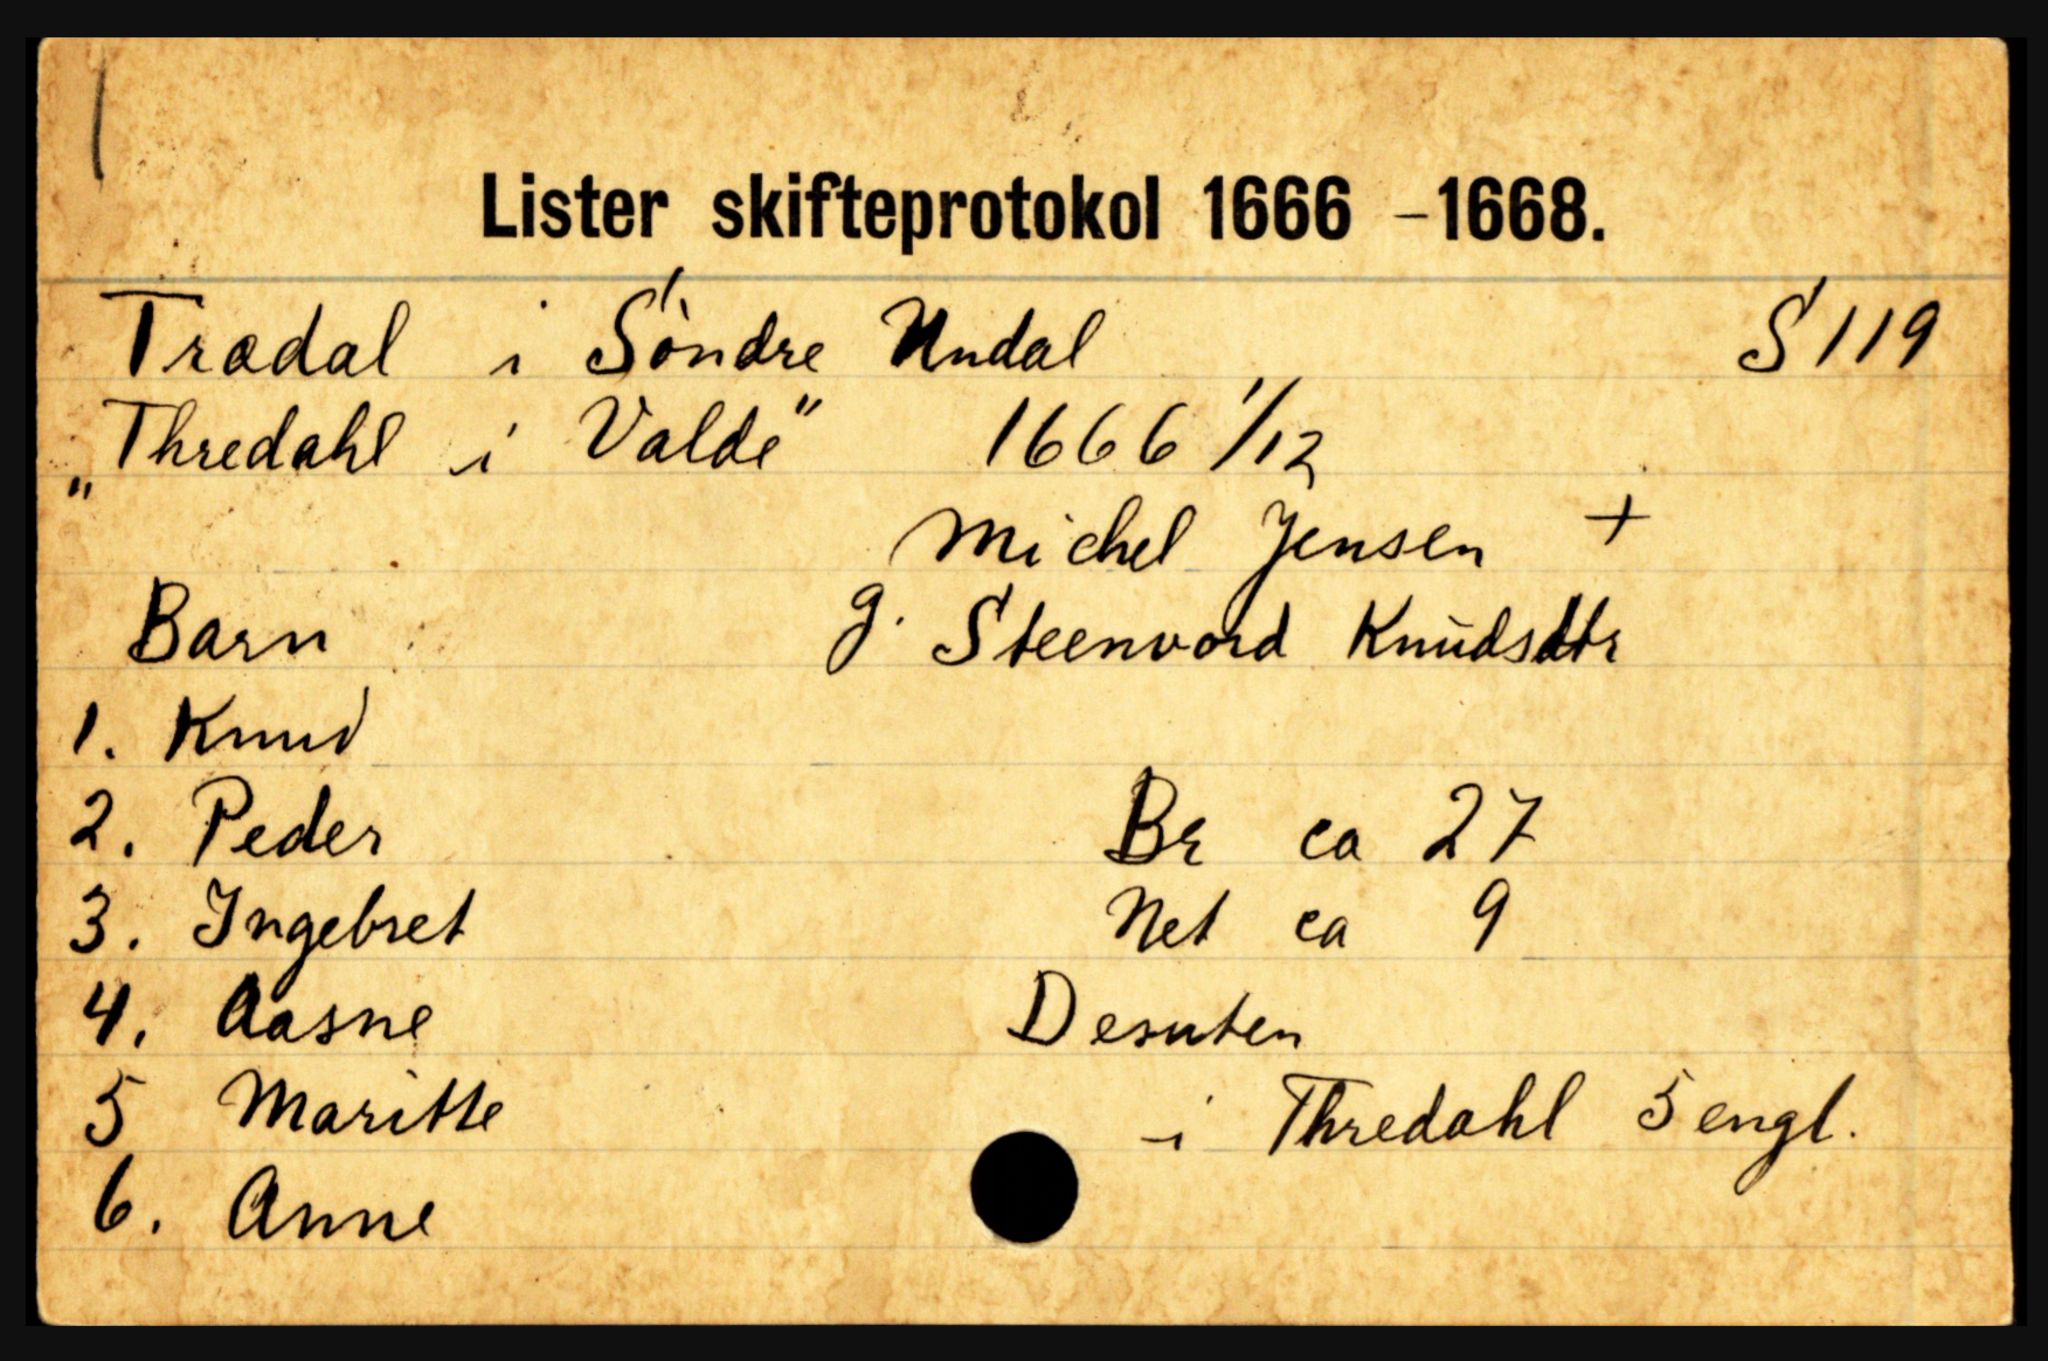 Lister skifteprotokol 1666 - 1668.
Trædal i Söndre Undal S 119
„Thredahl i Valde" 1666 1/12
Michel Jensen +
Barn g. Steenvord Knudsdtr
1. Knud
2. Peder Br ca 27
3. Ingebret Net ca 9
4. Aasne Desuten
5 Maritte i Thredahl 5 engl.
6. Anne